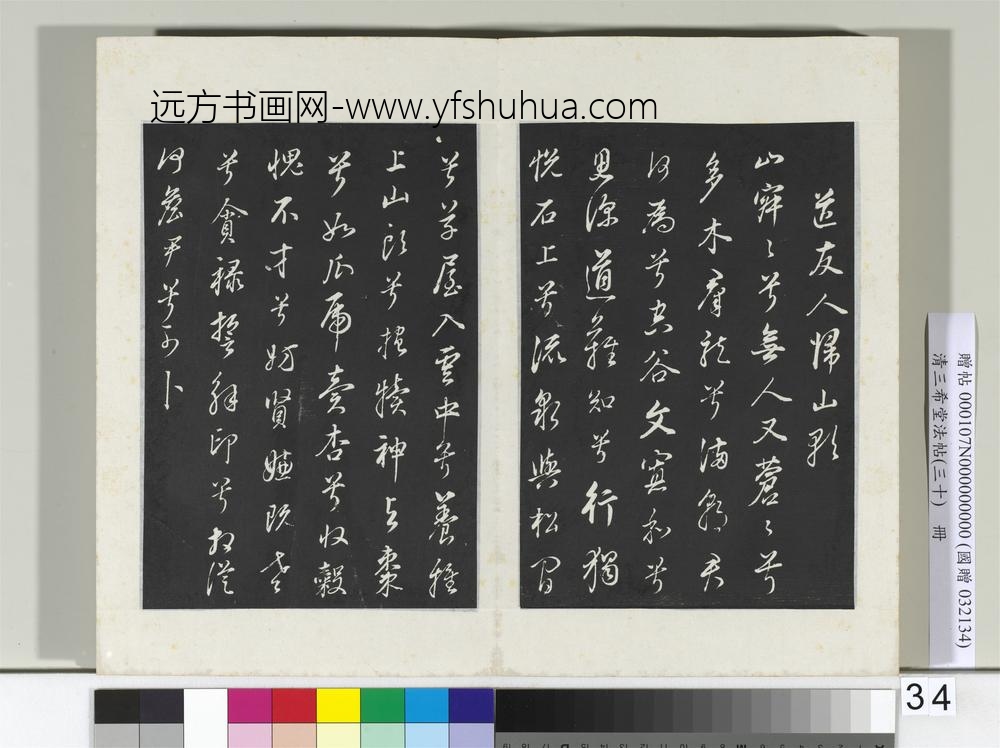 远方书画网-www.yfshuhua.com
送友人歸山歌
山寂〻兮無人又蒼〻兮
多木羣龍兮滿朝君
何為兮空谷文寡和兮
思深道難知兮行獨
悦石上兮流泉與松間
兮草屋入雲中兮養雞
上山頭兮抱犢神與棗
兮如瓜虎賣杏兮收穀
愧不才兮妨賢嫌既老
兮貪祿誓解印兮相從
何詹尹兮可卜
贈帖 000107N000000000 (國贈 032134)
清三希堂法帖(三十) 冊
34